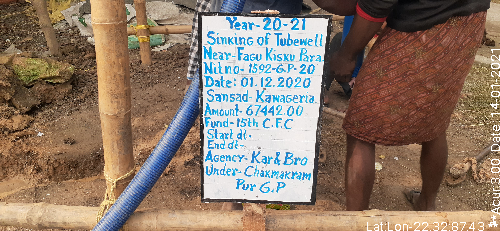 Year-20-21
Sinking of Tubewell
Near-Fagu Kisku Para
Nitno-1592-G.P-20
Date: 01.12.2020
Sansad-Kawageria.
Amount-67442.00
Fund-15th C.F.C
Start dt-
End dt-
Agency-Kar & Bro
Under-Chakmakram
Pur G.P